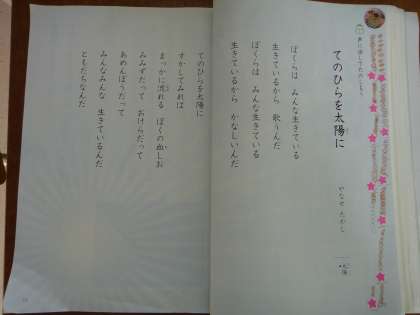 声に出してたのしもう
てのひらを太陽に
やなせ たかし
ぼくらは みんな生きている
生きているから 歌うんだ
ぼくらは みんな生きている
生きているから かなしいんだ
てのひらを太陽に
すかしてみれば
まっかに流れる ぼくの血しお
みみずだって おけらだって
あめんぼうだって
みんなみんな 生きているんだ
ともだちなんだ